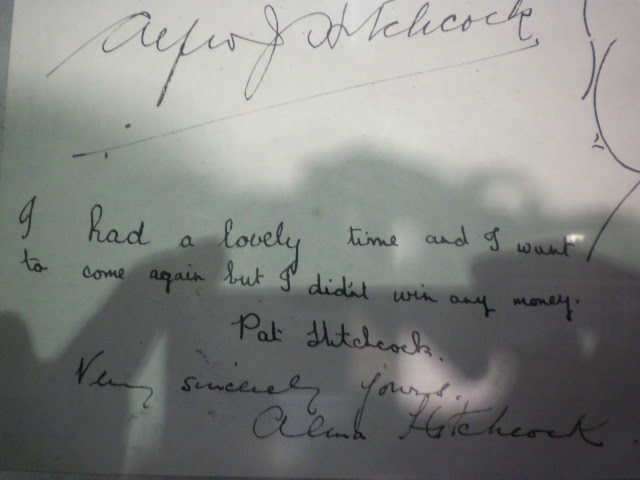 Alfred J Hitchcock
I had a lovely time and I want
to come again but I didn't win any money.
Pat Hitchcock.
Very sincerely yours.
Alma Hitchcock.